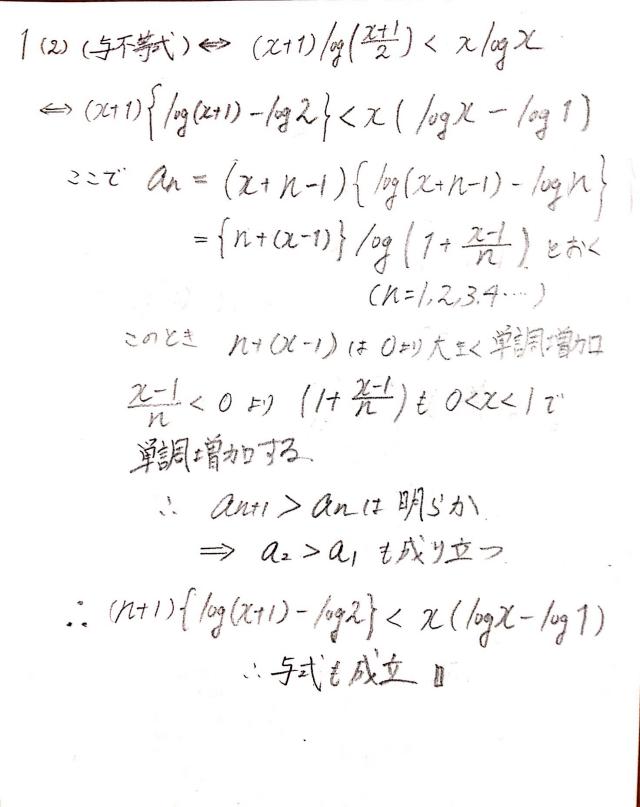 1 (2) (与不等式) ⇔ (x+1) log(\frac{x+1}{2}) < x log x
⇔ (x+1) {log(x+1) - log2} < x ( log x - log 1 )
ここで an = (x+n-1) {log(x+n-1) - log n}
= {n+(x-1)} log ( 1 + \frac{x-1}{n} ) とおく
(n=1,2,3,4…)
このとき n+(x-1) は 0より大きく 単調増加
\frac{x-1}{n} < 0 より (1+\frac{x-1}{n}) も 0<x<1 で
単調増加する
∴ an+1 > an は 明らか
⇒ a2 > a1 も成り立つ
∴ (n+1) {log(x+1) - log2} < x (log x - log 1)
∴ 与式も成立